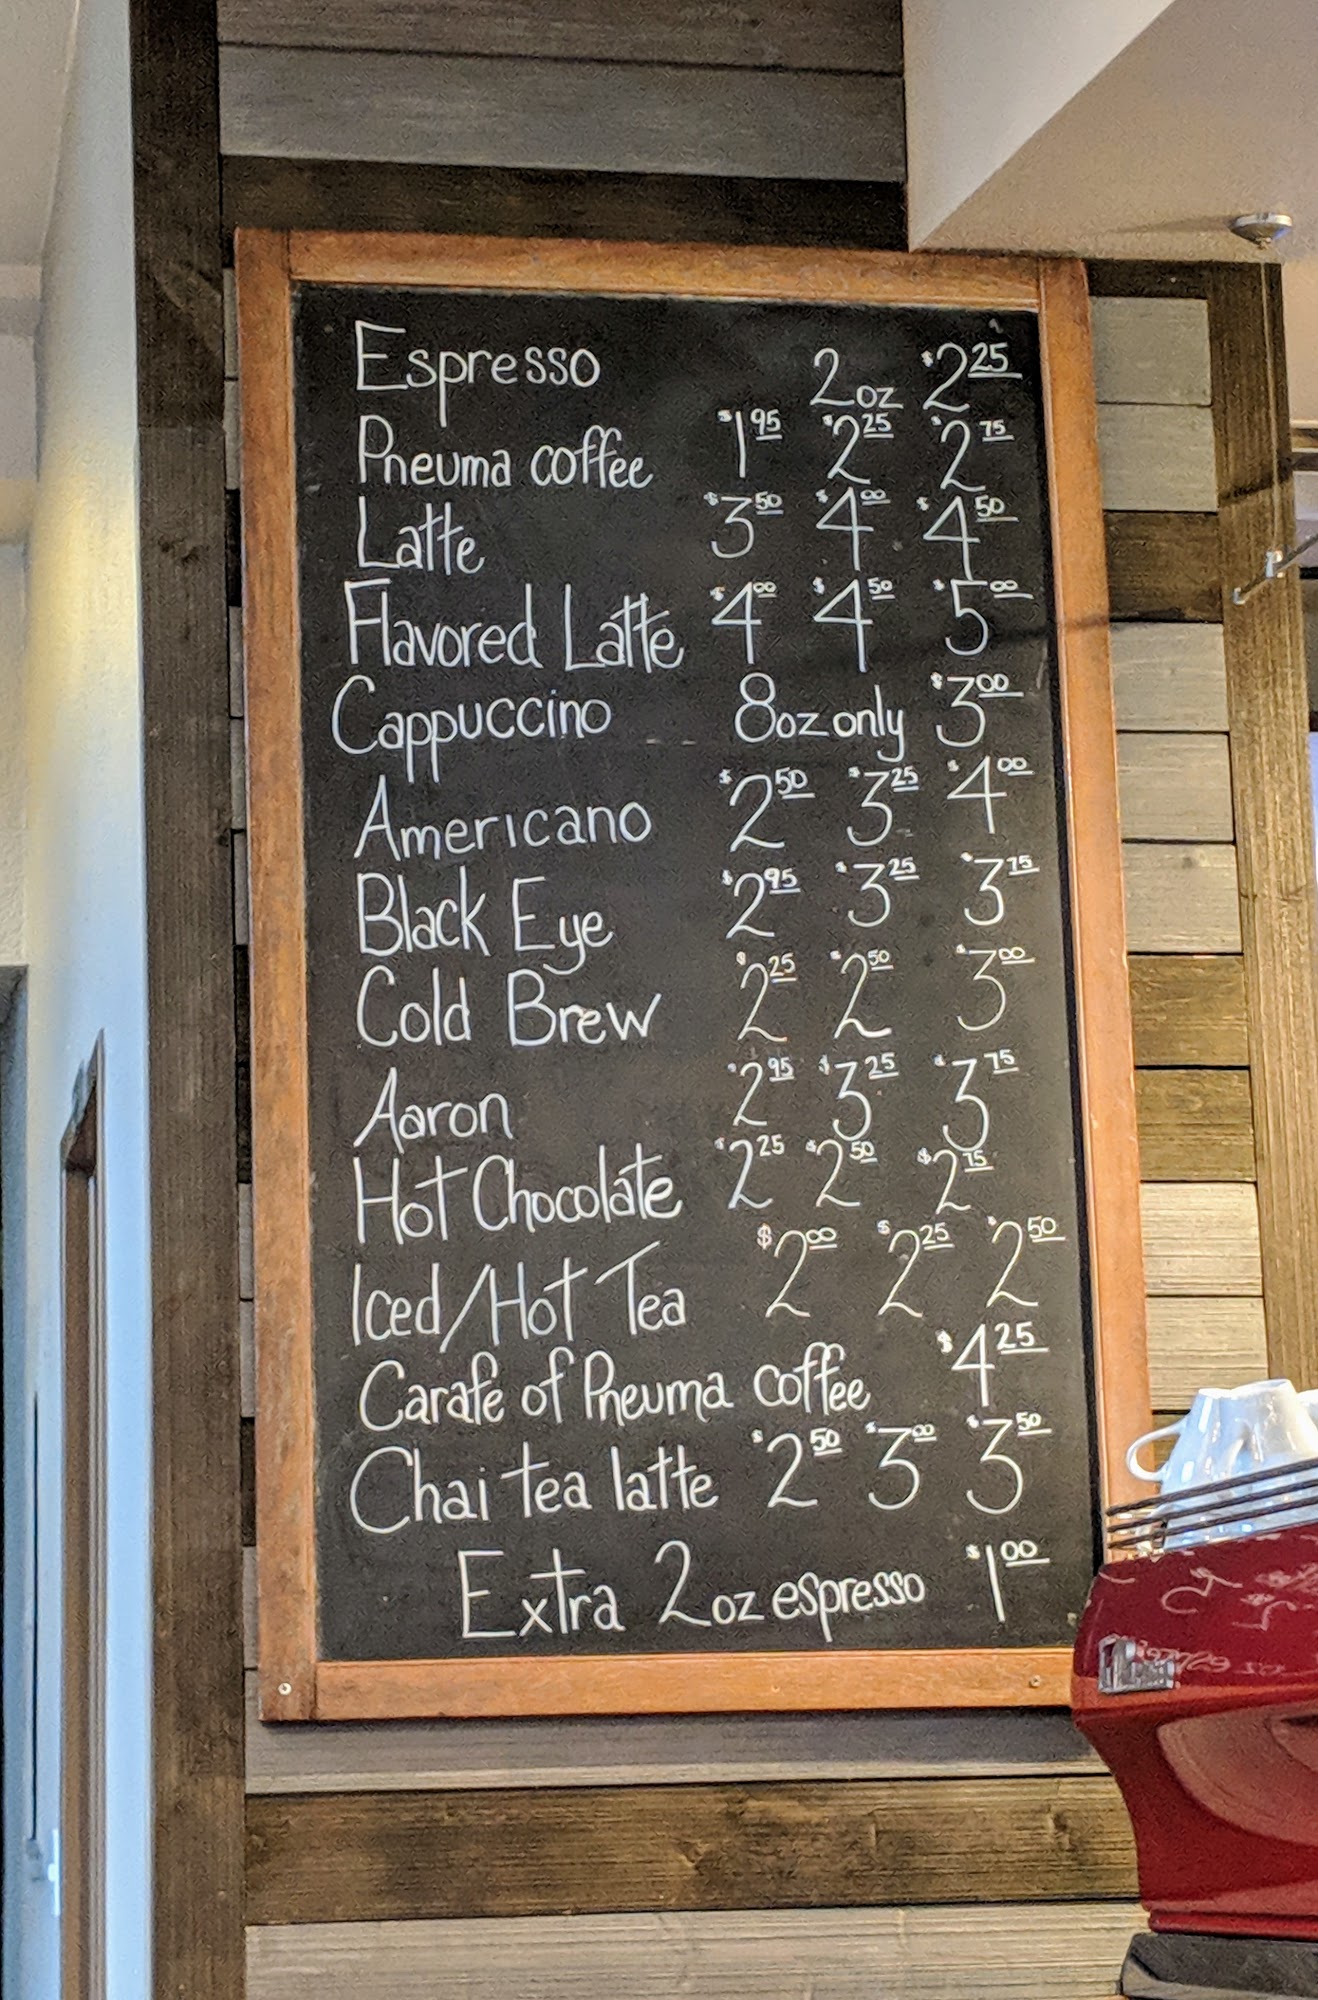 Espresso 2oz $2.25
Pneuma coffee $1.95 $2.25 $2.75
Latte $3.50 $4.00 $4.50
Flavored Latte $4.00 $4.50 $5.00
Cappuccino 8oz only $3.00
Americano $2.50 $3.25 $4.00
Black Eye $2.95 $3.25 $3.75
Cold Brew $2.25 $2.50 $3.00
Aaron $2.95 $3.25 $3.75
Hot Chocolate $2.25 $2.50 $2.75
Iced/Hot Tea $2.00 $2.25 $2.50
Carafe of Pneuma coffee $4.25
Chai tea latte $2.50 $3.00 $3.50
Extra 2oz espresso $1.00